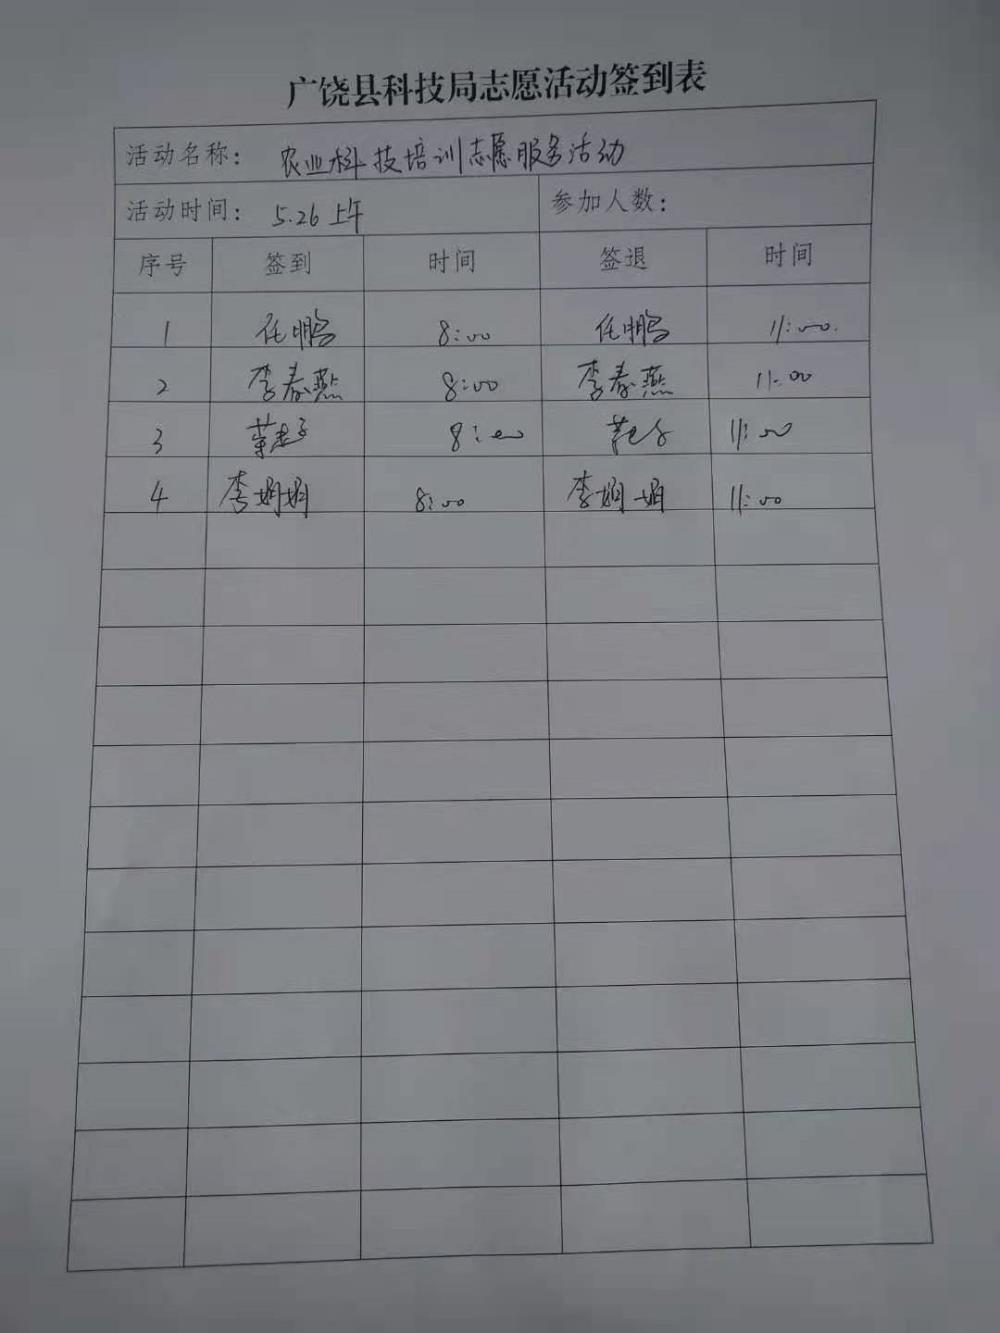 广饶县科技局志愿活动签到表
活动名称： 农业科技培训志愿服务活动
活动时间： 5.26 上午 参加人数：
序号 签到 时间 签退 时间
1 任鹏 8:00 任鹏 11:00.
2 李春燕 8:00 李春燕 11:00
3 8:00 11:00
4 李娟娟 8:00 李娟娟 11:00